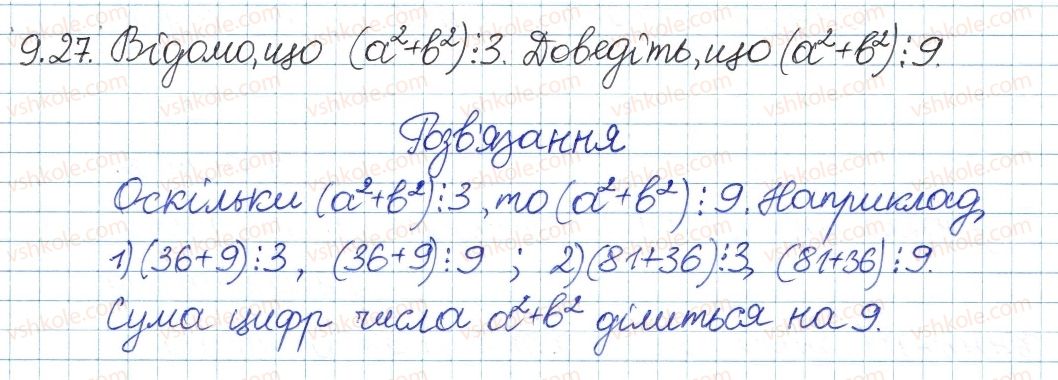 9.27. Відомо, що (a²+b²)⋮3. Доведіть, що (a²+b²)⋮9.
Розв'язання
Оскільки (a²+b²)⋮3, то (a²+b²)⋮9. Наприклад,
1) (36+9)⋮3, (36+9)⋮9 ; 2) (81+36)⋮3, (81+36)⋮9.
Сума цифр числа a²+b² ділиться на 9.
vshkole.com